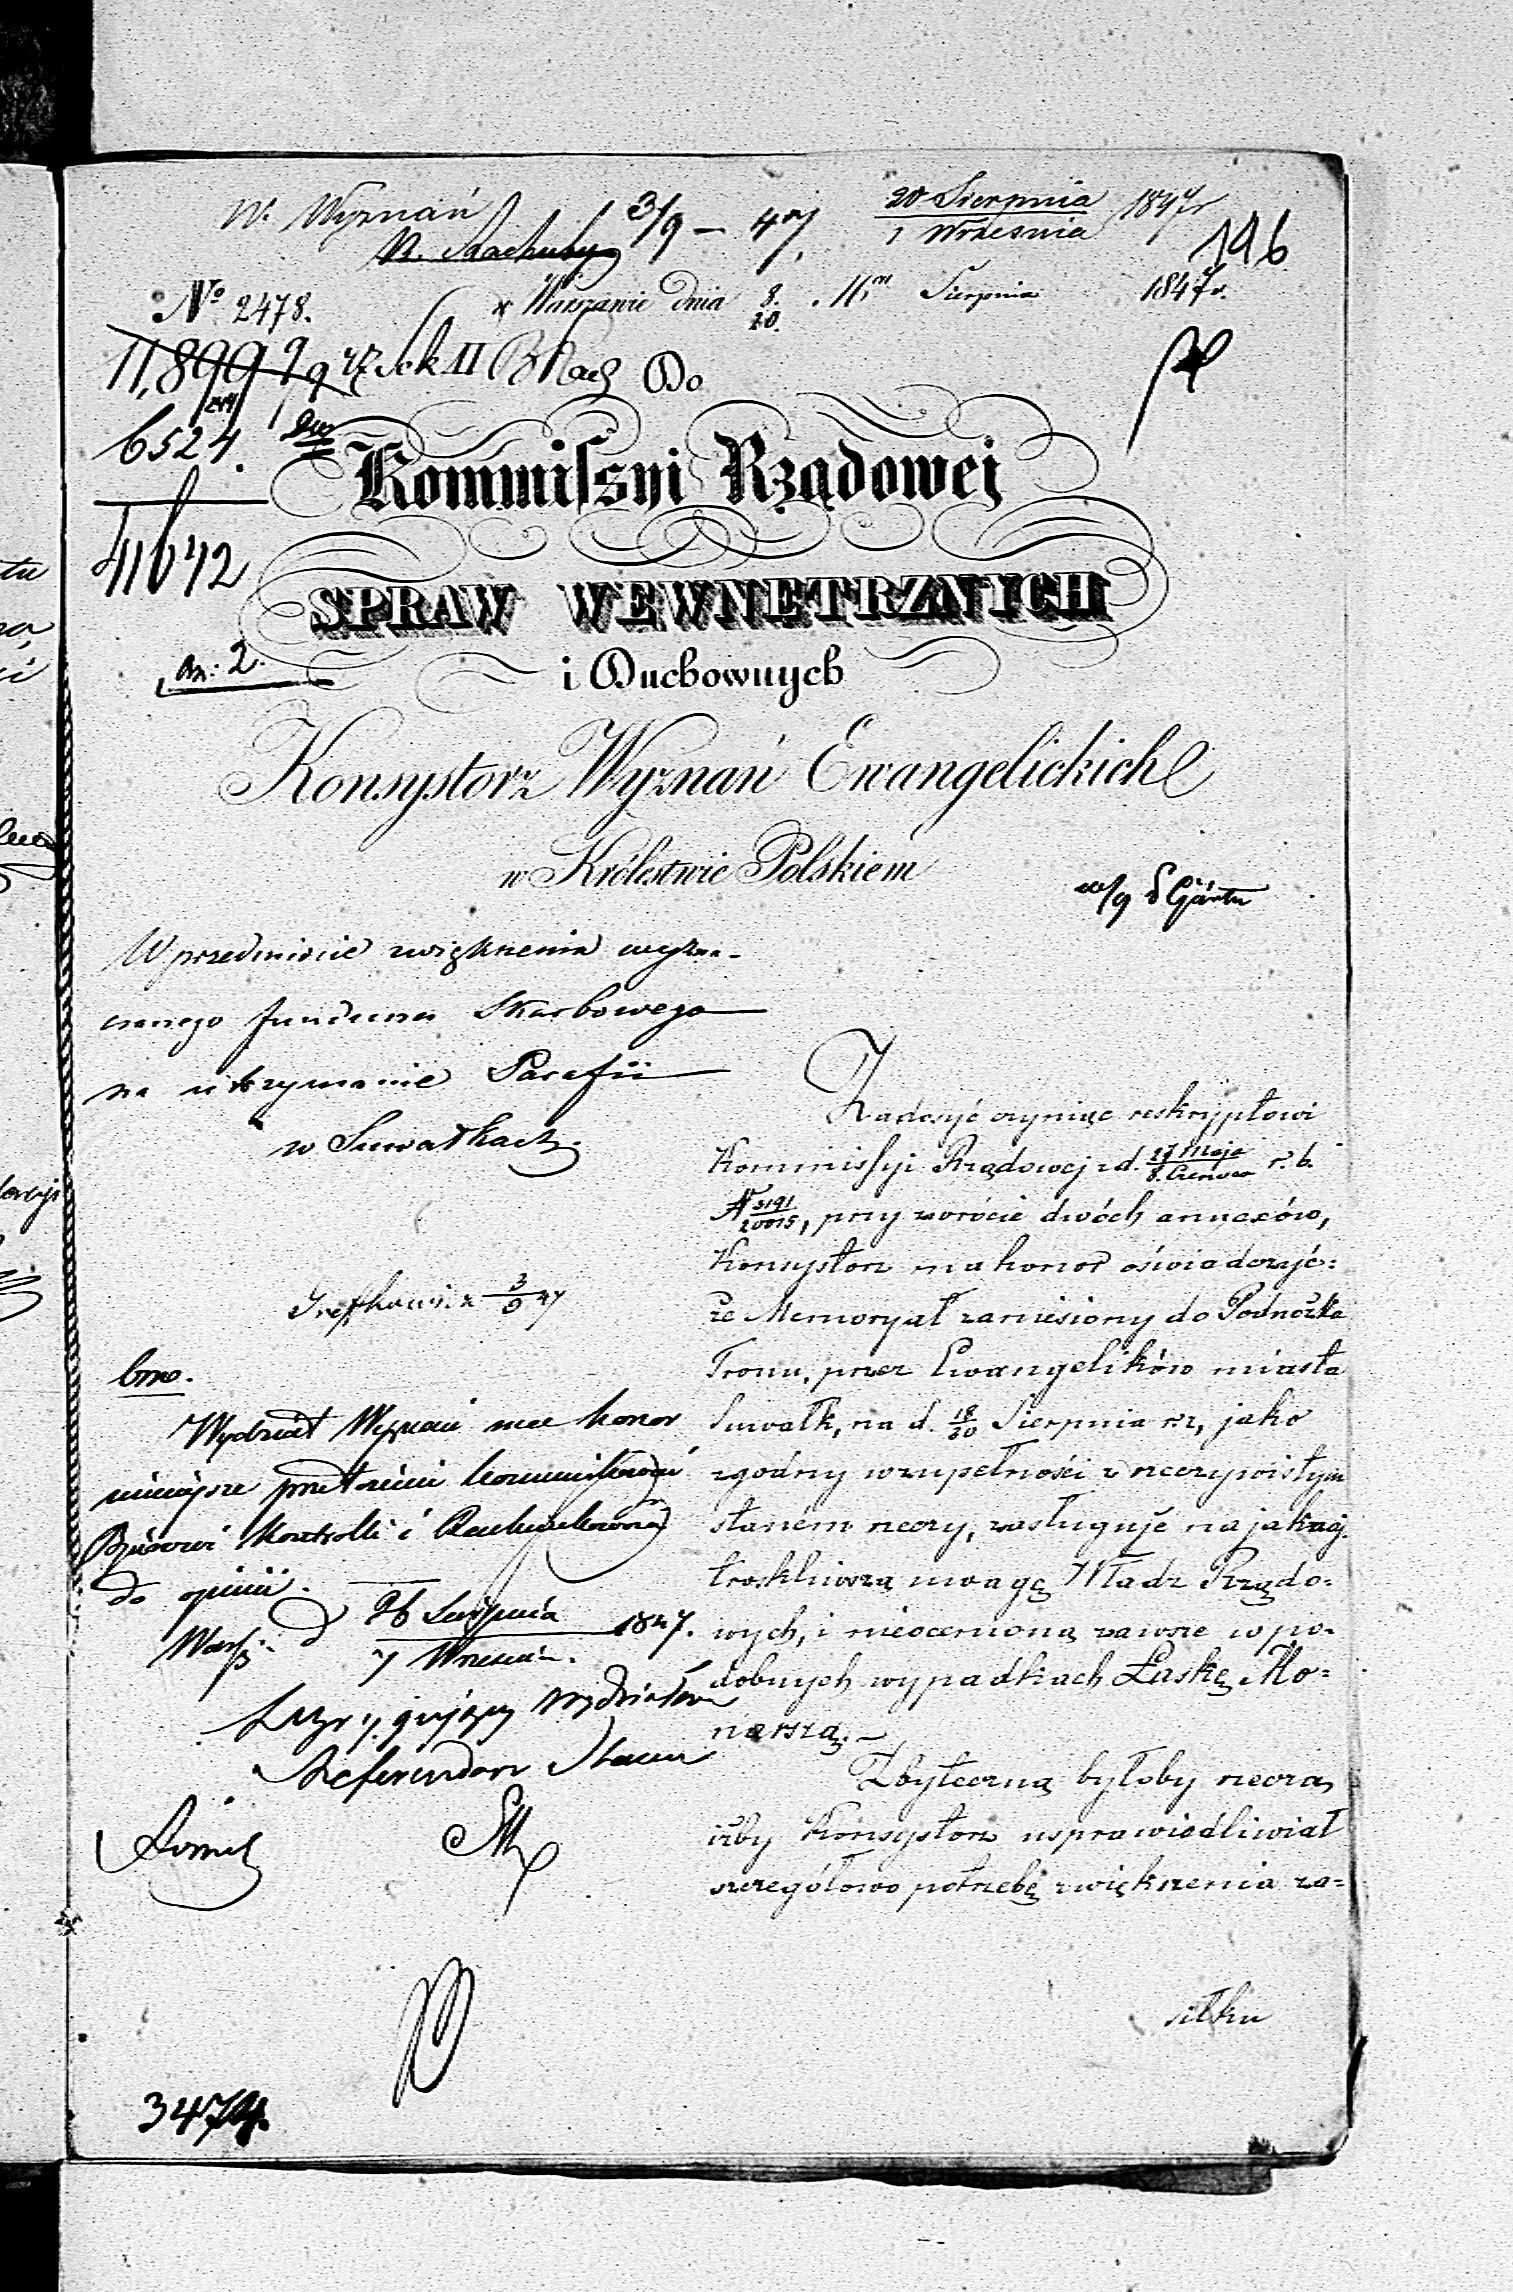 W. Wyznań 3/9 – 47.
20 Sierpnia 1847r
1 Września
196
No 2478.
w Warszawie dnia 8. Sierpnia 1847r.
20.
11,899
Do
6524.
Kommissyi Rządowej
41642
SPRAW WEWNĘTRZNYCH
i Duchownych
an: 2.
Konsystorz Wyznań Ewangelickich
w Królestwie Polskiém
W przedmiocie zwiększenia wyzna-
czonego funduszu Skarbowego
na utrzymanie Parafii
w Suwałkach.
Zadosyć czyniąc reskryptowi
Kommissyi Rządowej z d. 27 Maja r. b.
8. Czerwca
N 5191, przy zwrócie dwóch annexów,
20015
Konsystorz ma honor oświadczyć:
że Memoryał zaniesiony do Podnóżka
Tronu, przez Ewangelików miasta
Suwałk, na d. 18 Sierpnia rz, jako
30
zgodny w zupełności z rzeczywistym
stanem rzeczy, zasługuje na jaknaj-
troskliwszą uwagę Władz Rządo-
wych, i nieocenioną zawsze w po-
dobnych wypadkach Łaskę Mo-
narszą. –
Zbyteczną byłoby rzeczą,
iżby Konsystorz usprawiedliwiał
szczegółowo potrzebę zwiększenia za-
siłku
3/9 47
bro.
Wydział Wyznań ma honor
niniejsze przedmiot kommunikować
Biurowi Kontrolli i Rachunkowości
do opinii.
Warsz. d 26 Sierpnia 1847.
7 Września.
Wydziałem
Referendarz Stanu
3474.